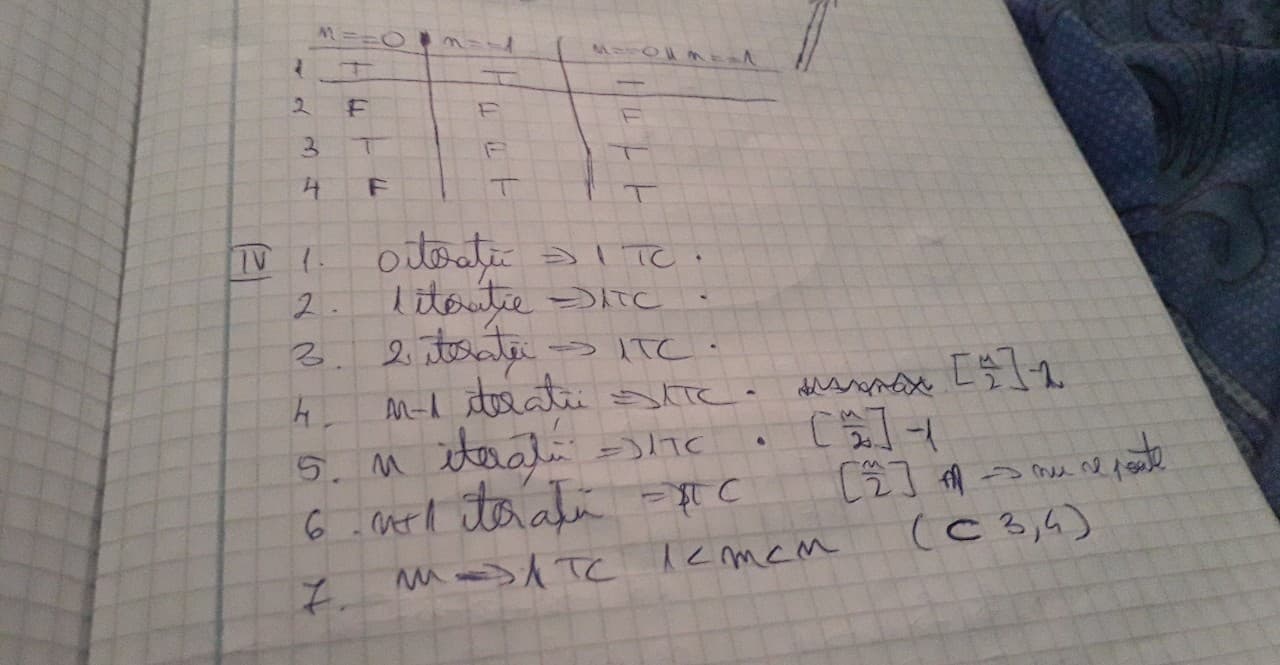 n==0 n==1 n==0 || n==1
1 T T T
2 F F F
3 T F T
4 F T T
IV 1. 0 iterații => 1 TC .
2. 1 iterație => 1TC .
3. 2 iterații => 1TC .
4. n-1 iterații => 1TC . [n/2]-2
5. n iterații => 1TC . [n/2]-1
6. n+1 iterații => TC [n/2] -> nu se poate
7. m => 1 TC 1<m<n (C 3,4)